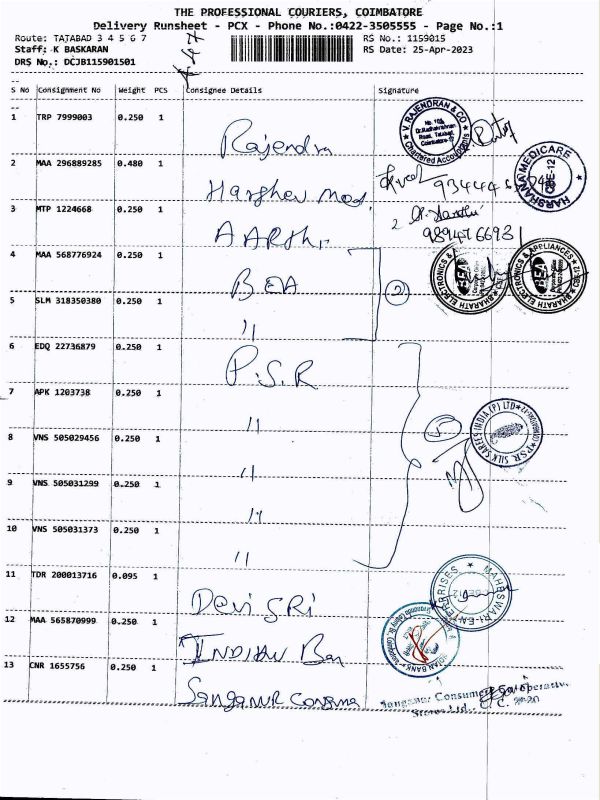 THE PROFESSIONAL COURIERS, COIMBATORE
Delivery Runsheet - PCX - Phone No.:0422-3505555 - Page No.:1
Route: TATABAD 3 4 5 6 7
RS No.: 1159015
Staff: K BASKARAN
RS Date: 25-Apr-2023
DRS No.: DCJB115901501
S No Consignment No Weight PCS Consignee Details Signature
1 TRP 7999003 0.250 1 Rajendra
V. RAJENDRAN & CO
Chartered Accountants
2 MAA 296889285 0.480 1 Harshev med.
HARSHANA MEDICARE
3 MTP 1224668 0.250 1 AARthi
9894766931
4 MAA 568776924 0.250 1 BEA
2
BHARATH ELECTRONICS & APPLIANCES
BEA
BHARATH ELECTRONICS & APPLIANCES
BEA
5 SLM 318350380 0.250 1 "
6 EDQ 22736879 0.250 1 P.S.R
7 APK 1203738 0.250 1 "
5
P.S.R. SILK SAREES INDIA (P) LTD
8 VNS 505029456 0.250 1 "
9 VNS 505031299 0.250 1 "
10 VNS 505031373 0.250 1 "
11 TDR 200013716 0.095 1 Devi SRI
MAHESWARI ENTERPRISES
12 MAA 565870999 0.250 1 INDIAN Ban
INDIAN BANK
13 CNR 1655756 0.250 1 Sanganur Consuma
Sanganur Consumers Co-operative
Stores Ltd.,